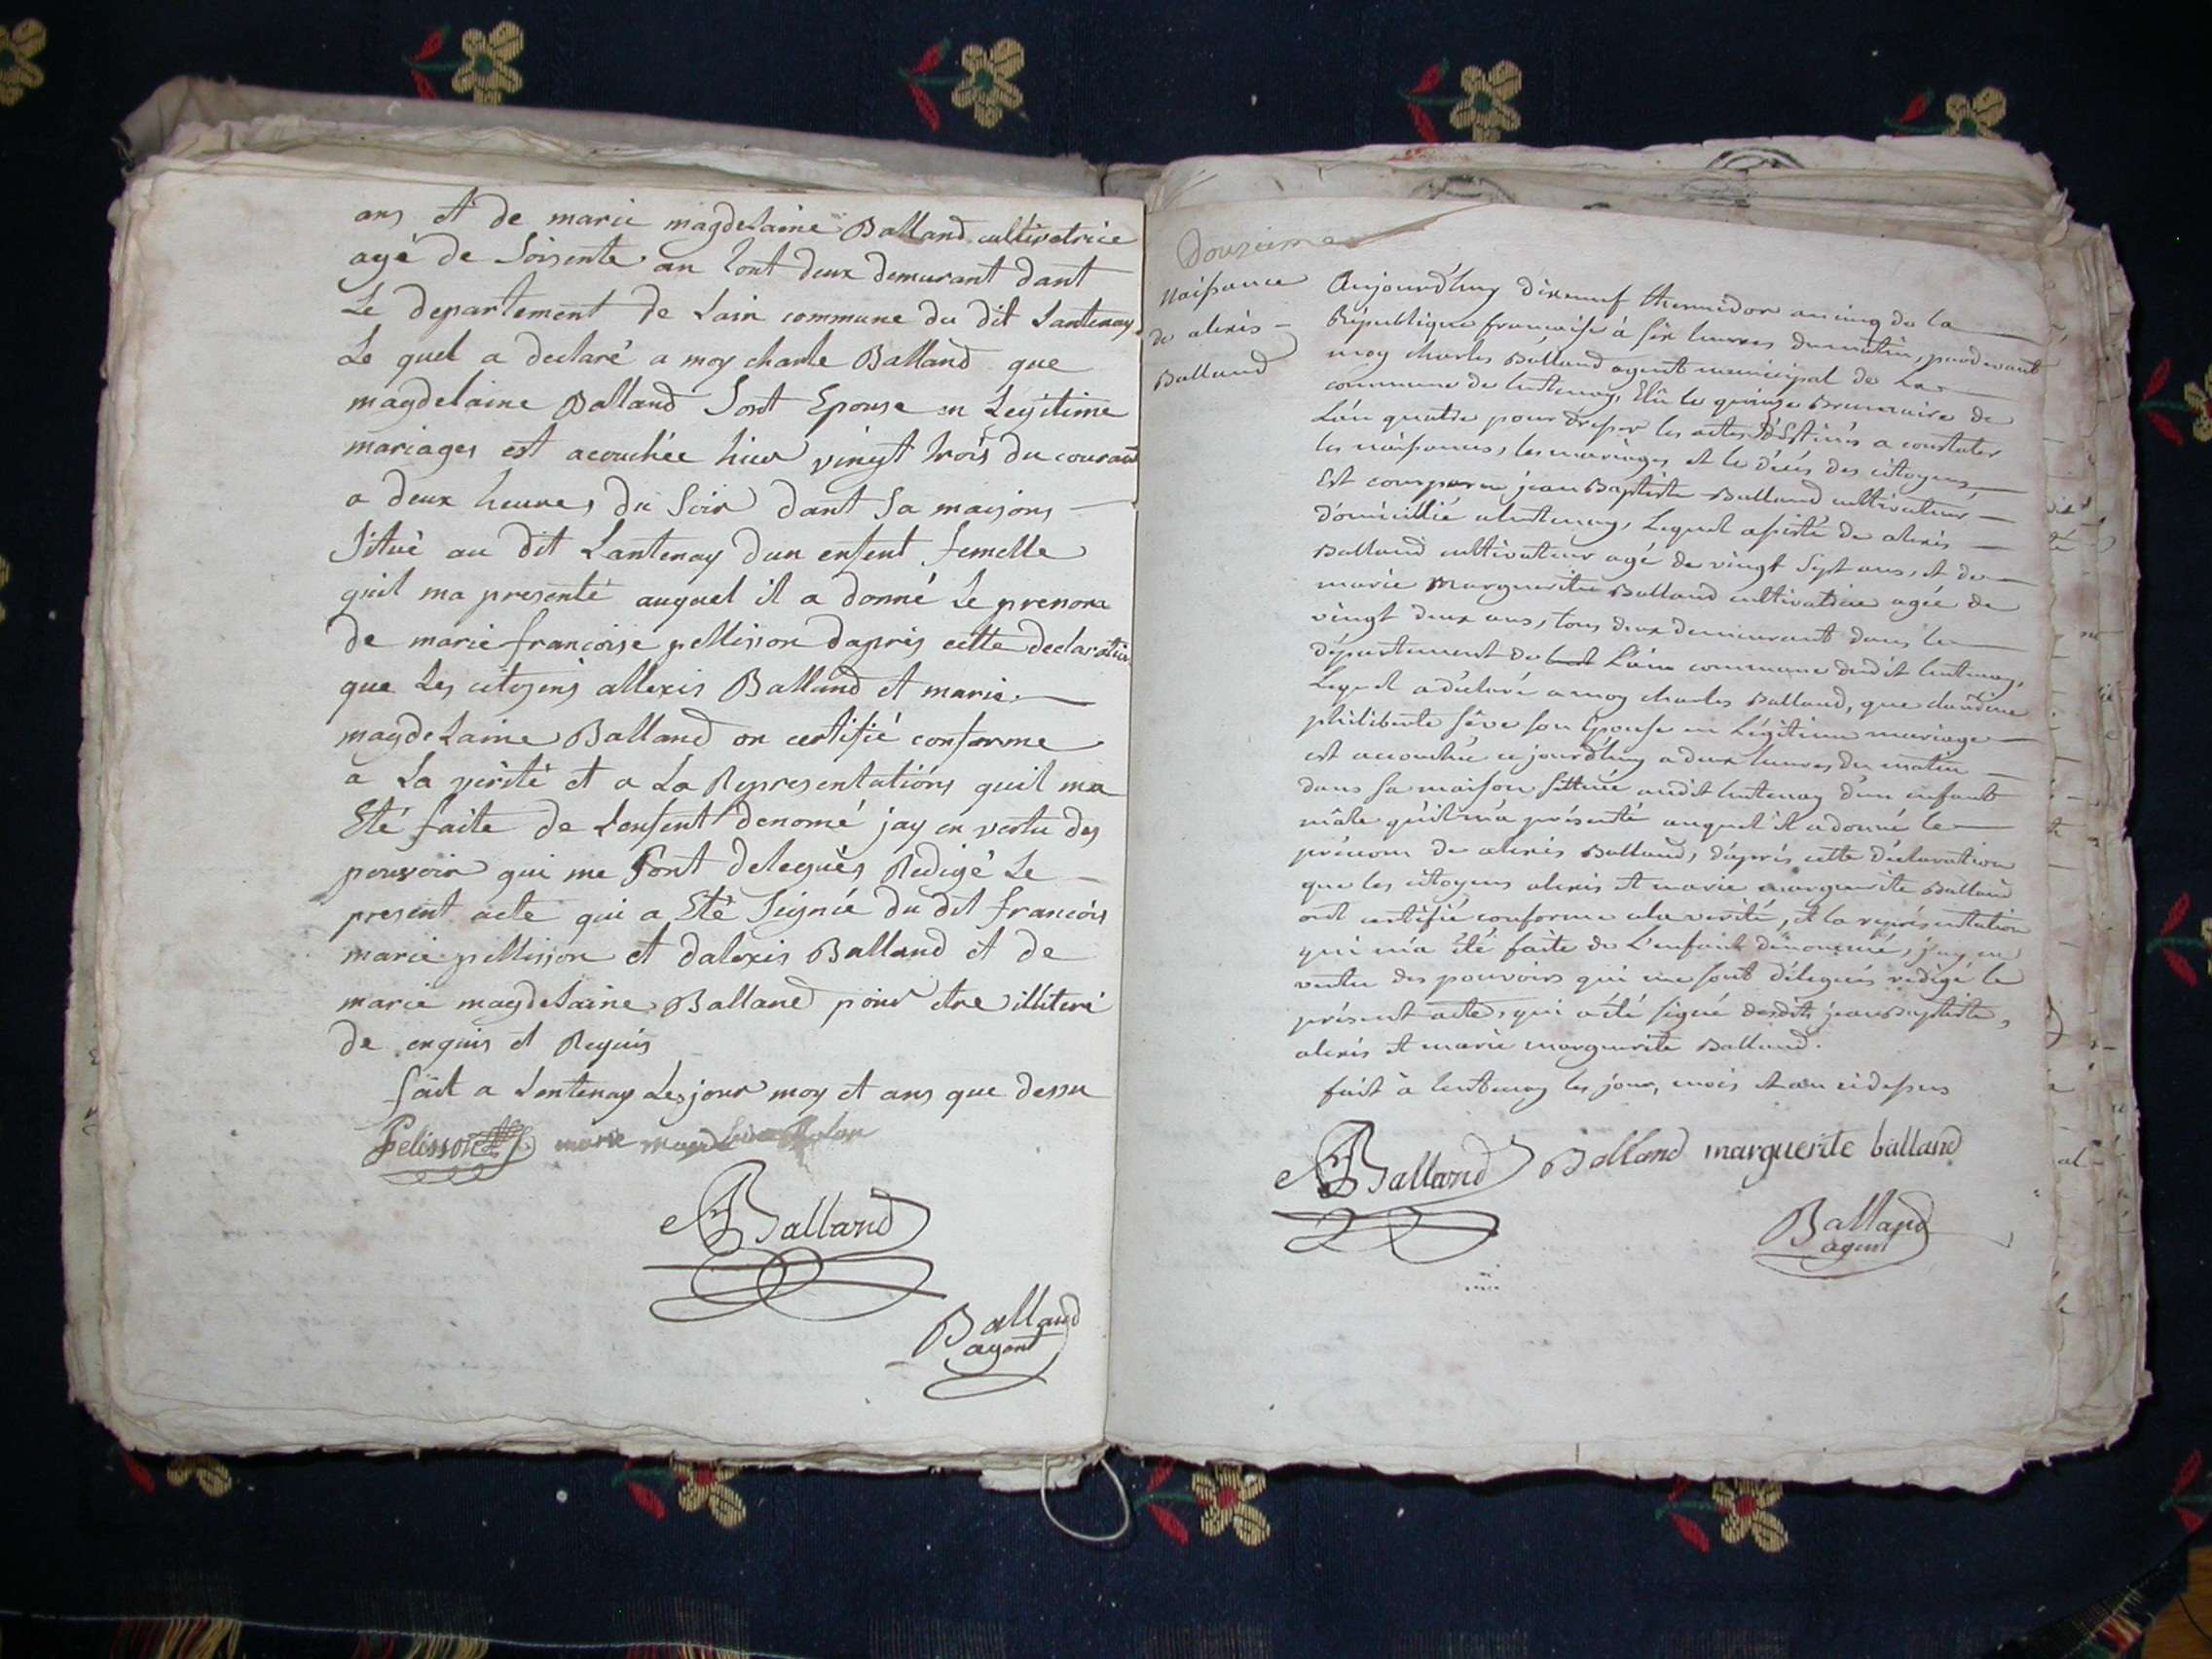 ans et de marie magdelaine Balland cultivatrice
agé de Soisente an tout deux demurant dant
Le departement de Lain commune du dit Lantenay
Le quel a declaré a moy charle Balland que
magdelaine Balland Sont Epouse en Legitime
mariages est acouchée hier vingt trois du courant
a deux heures du Soir dant Sa maisons
Situé au dit Lantenay dun enfent femelle
quil ma presenté auquel il a donné Le prenom
de marie francoise pellisson dapris cette declaration
que Les citoyens allexis Balland et marie
magdelaine Balland on certifié conforme
a La verité et a La Representations quil ma
Eté faite de Lenfent denomé jay en vertu des
pouvoir qui me sont delegués Redigé Le
present acte qui a Eté Seignée du dit francois
marie pellisson et dalexis Balland et de
marie magdelaine Balland pour etre illiteré
de enquis et Requis
fait a Lentenay Les jour moy et ans que dessu
Pelisson marie
Balland
Balland
agent
Douzieme
Naissance
de alexis
Balland
Aujourd'huy dixneuf thermidor an cinq de la
République francaise à six heures du matin, pardevant
moy charles Balland agent municipal de La
commune de lentenay, Elû le quinze Brumaire de
L'an quatre pour dresser les actes déstinés a constater
les naissances, les mariages et le décés des citoyens,
Est comparu jean Baptiste Balland cultivateur
domicillié a lentenay, Lequel assisté de alexis
Balland cultivateur agé de vingt Sept ans, et de
marie Marguerite Balland cultivatrice agée de
vingt deux ans, tous deux demeurant dans le
département de L'ain commune dudit lentenay,
Lequel a déclaré a moy charles Balland, que claudine
philiberte séve son Epouse en Légitime mariage
est accouchée ce jourd'huy a deux heures du matin
dans sa maison sittuée audit lentenay d'un enfant
mâle qu'il m'a présenté auquel il a donné le
prénom de alexis Balland, d'aprés cette déclaration
que les citoyens alexis et marie marguerite Balland
ont certifié conforme a la verité, et la représentation
qui m'a été faite de L'enfant dénommé, j'ay en
vertu des pouvoirs qui me sont délegués rédigé le
présent acte, qui a été signé desdits jean Baptiste,
alexis et marie marguerite Balland.
fait à lentenay les jour, mois et an cidessus
Balland Balland marguerite balland
Balland
agent